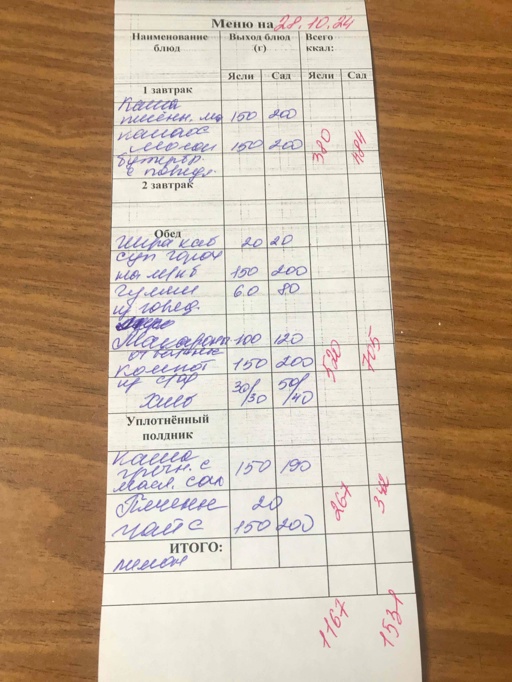 Меню на 28.10.24
Наименование блюд Выход блюд (г) Всего ккал:
Ясли Сад Ясли Сад
1 завтрак
Каша
пшенн. мо 150 200
какао с
молок 150 200 380 484
бутербр.
с повидл.
2 завтрак
Обед
Икра каб 20 20
суп горох
на м/кб 150 200
гуляш 60 80
из говяд.
Макароны 100 120
отварные
компот 150 200 520 705
из сух
Хлеб 30/30 50/40
Уплотнённый полдник
Каша
гречн. с 150 190
масл. сах
Печенье 20 267 342
чай с 150 200
ИТОГО:
лимон
1167 1531